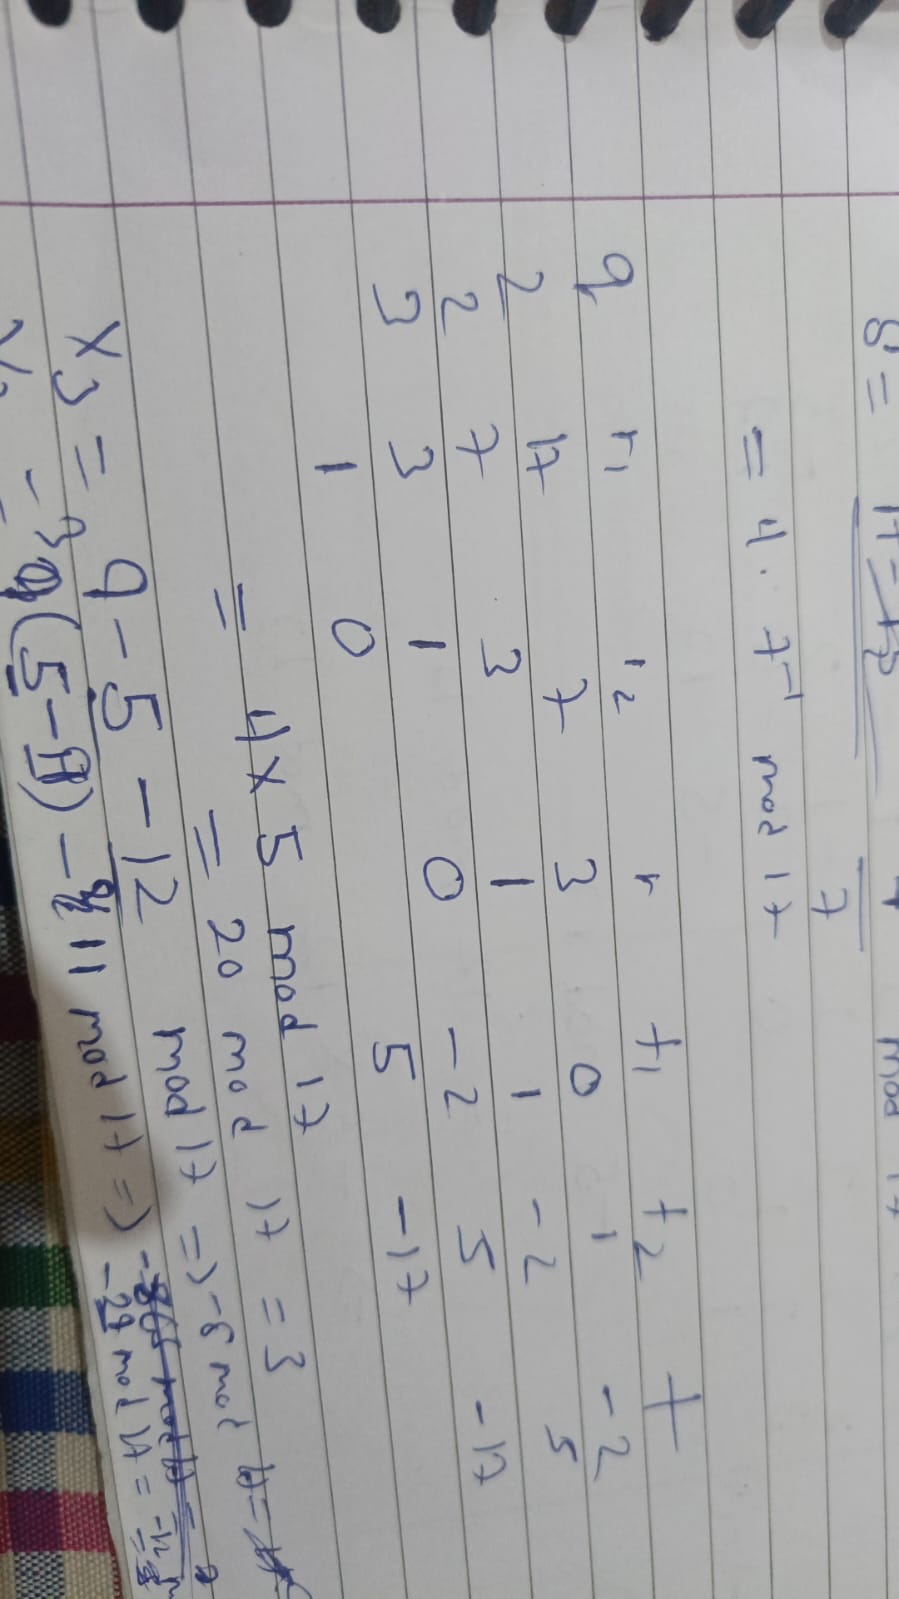 8 = 17 - 13 mod 17
7
= 4 . 7⁻¹ mod 17
q r1 r2 r t1 t2 t
2 17 7 3 0 1 -2
2 7 3 1 1 -2 5
3 3 1 0 -2 5 -17
1 0 5 -17
= 4 x 5 mod 17
= 20 mod 17 = 3
x3 = 9 - 5 - 12 mod 17 => -8 mod 17 =
= 3 (5 - 11) - 11 mod 17 => -29 mod 17 =